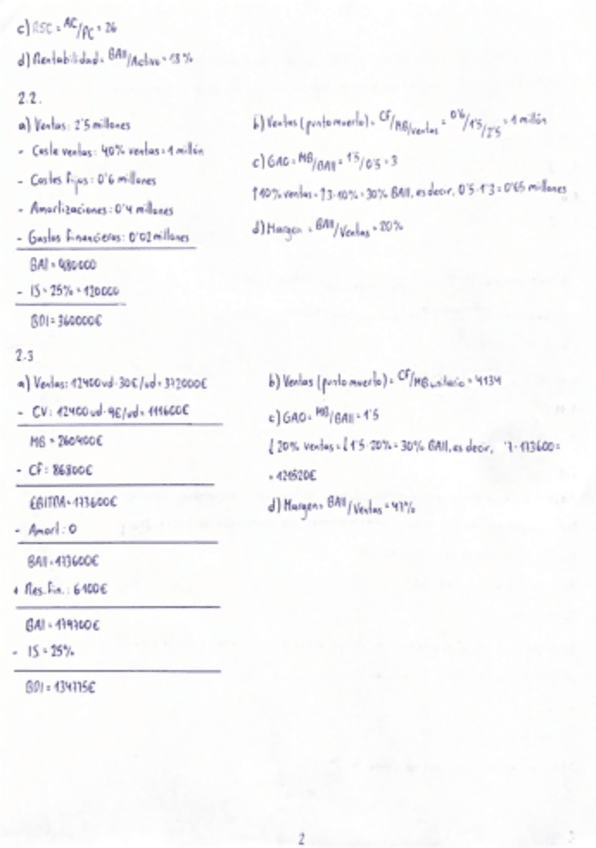 c) RSC = AC/PC = 26
d) Rentabilidad = BAII/Activo = 13%
2.2.
a) Ventas: 2'5 millones
- Coste ventas: 40% ventas = 1 millón
- Costes fijos: 0'6 millones
- Amortizaciones: 0'4 millones
- Gastos financieros: 0'02 millones
BAI = 480000
- IS = 25% = 120000
BDI = 360000€
b) Ventas (punto muerto) = CF/MB/ventas = 0'6/1'5/2'5 = 1 millón
c) GAO = MB/BAII = 1'5/0'5 = 3
↑10% ventas = ↑3·10% = 30% BAII, es decir, 0'5·1'3 = 0'65 millones
d) Margen = BAII/Ventas = 20%
2.3
a) Ventas: 12400ud·30€/ud = 372000€
- CV: 12400ud·9€/ud = 111600€
MB = 260400€
- CF: 86800€
EBITDA = 173600€
- Amort: 0
BAII = 173600€
+ Res. Fin.: 6100€
BAI = 179700€
- IS = 25%
BDI = 134775€
b) Ventas (punto muerto) = CF/MBunitario = 4134
c) GAO = MB/BAII = 1'5
↓20% ventas = ↓1'5·20% = 30% BAII, es decir, '7·173600 =
= 121520€
d) Margen = BAII/Ventas = 47%
2